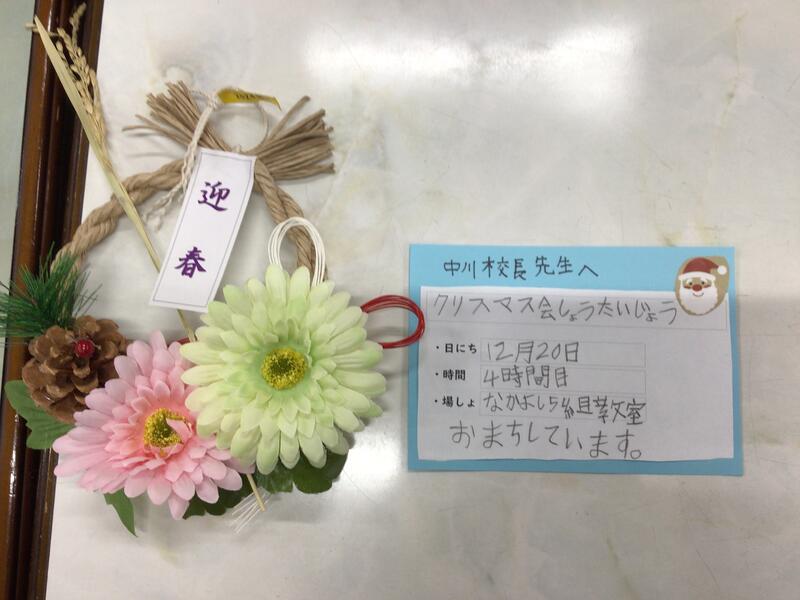 迎春
中川校長先生へ
クリスマス会しょうたいじょう
・日にち 12月20日
・時間 4時間目
・場しょ なかよし5組教室
おまちしています。